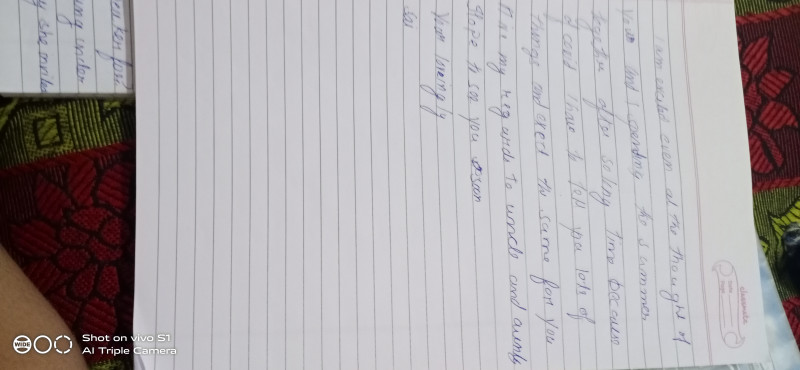 classmate
Date
Page
I am excited even at the thought of
You and I spending the summer
together after so long Time because
I could Time to tell you lots of
Things and exect the same for you
my regards to uncle and aunty
Hope to see you soon
Your lovingly
Sai
she
Shot on vivo S1
AI Triple Camera
WIDE